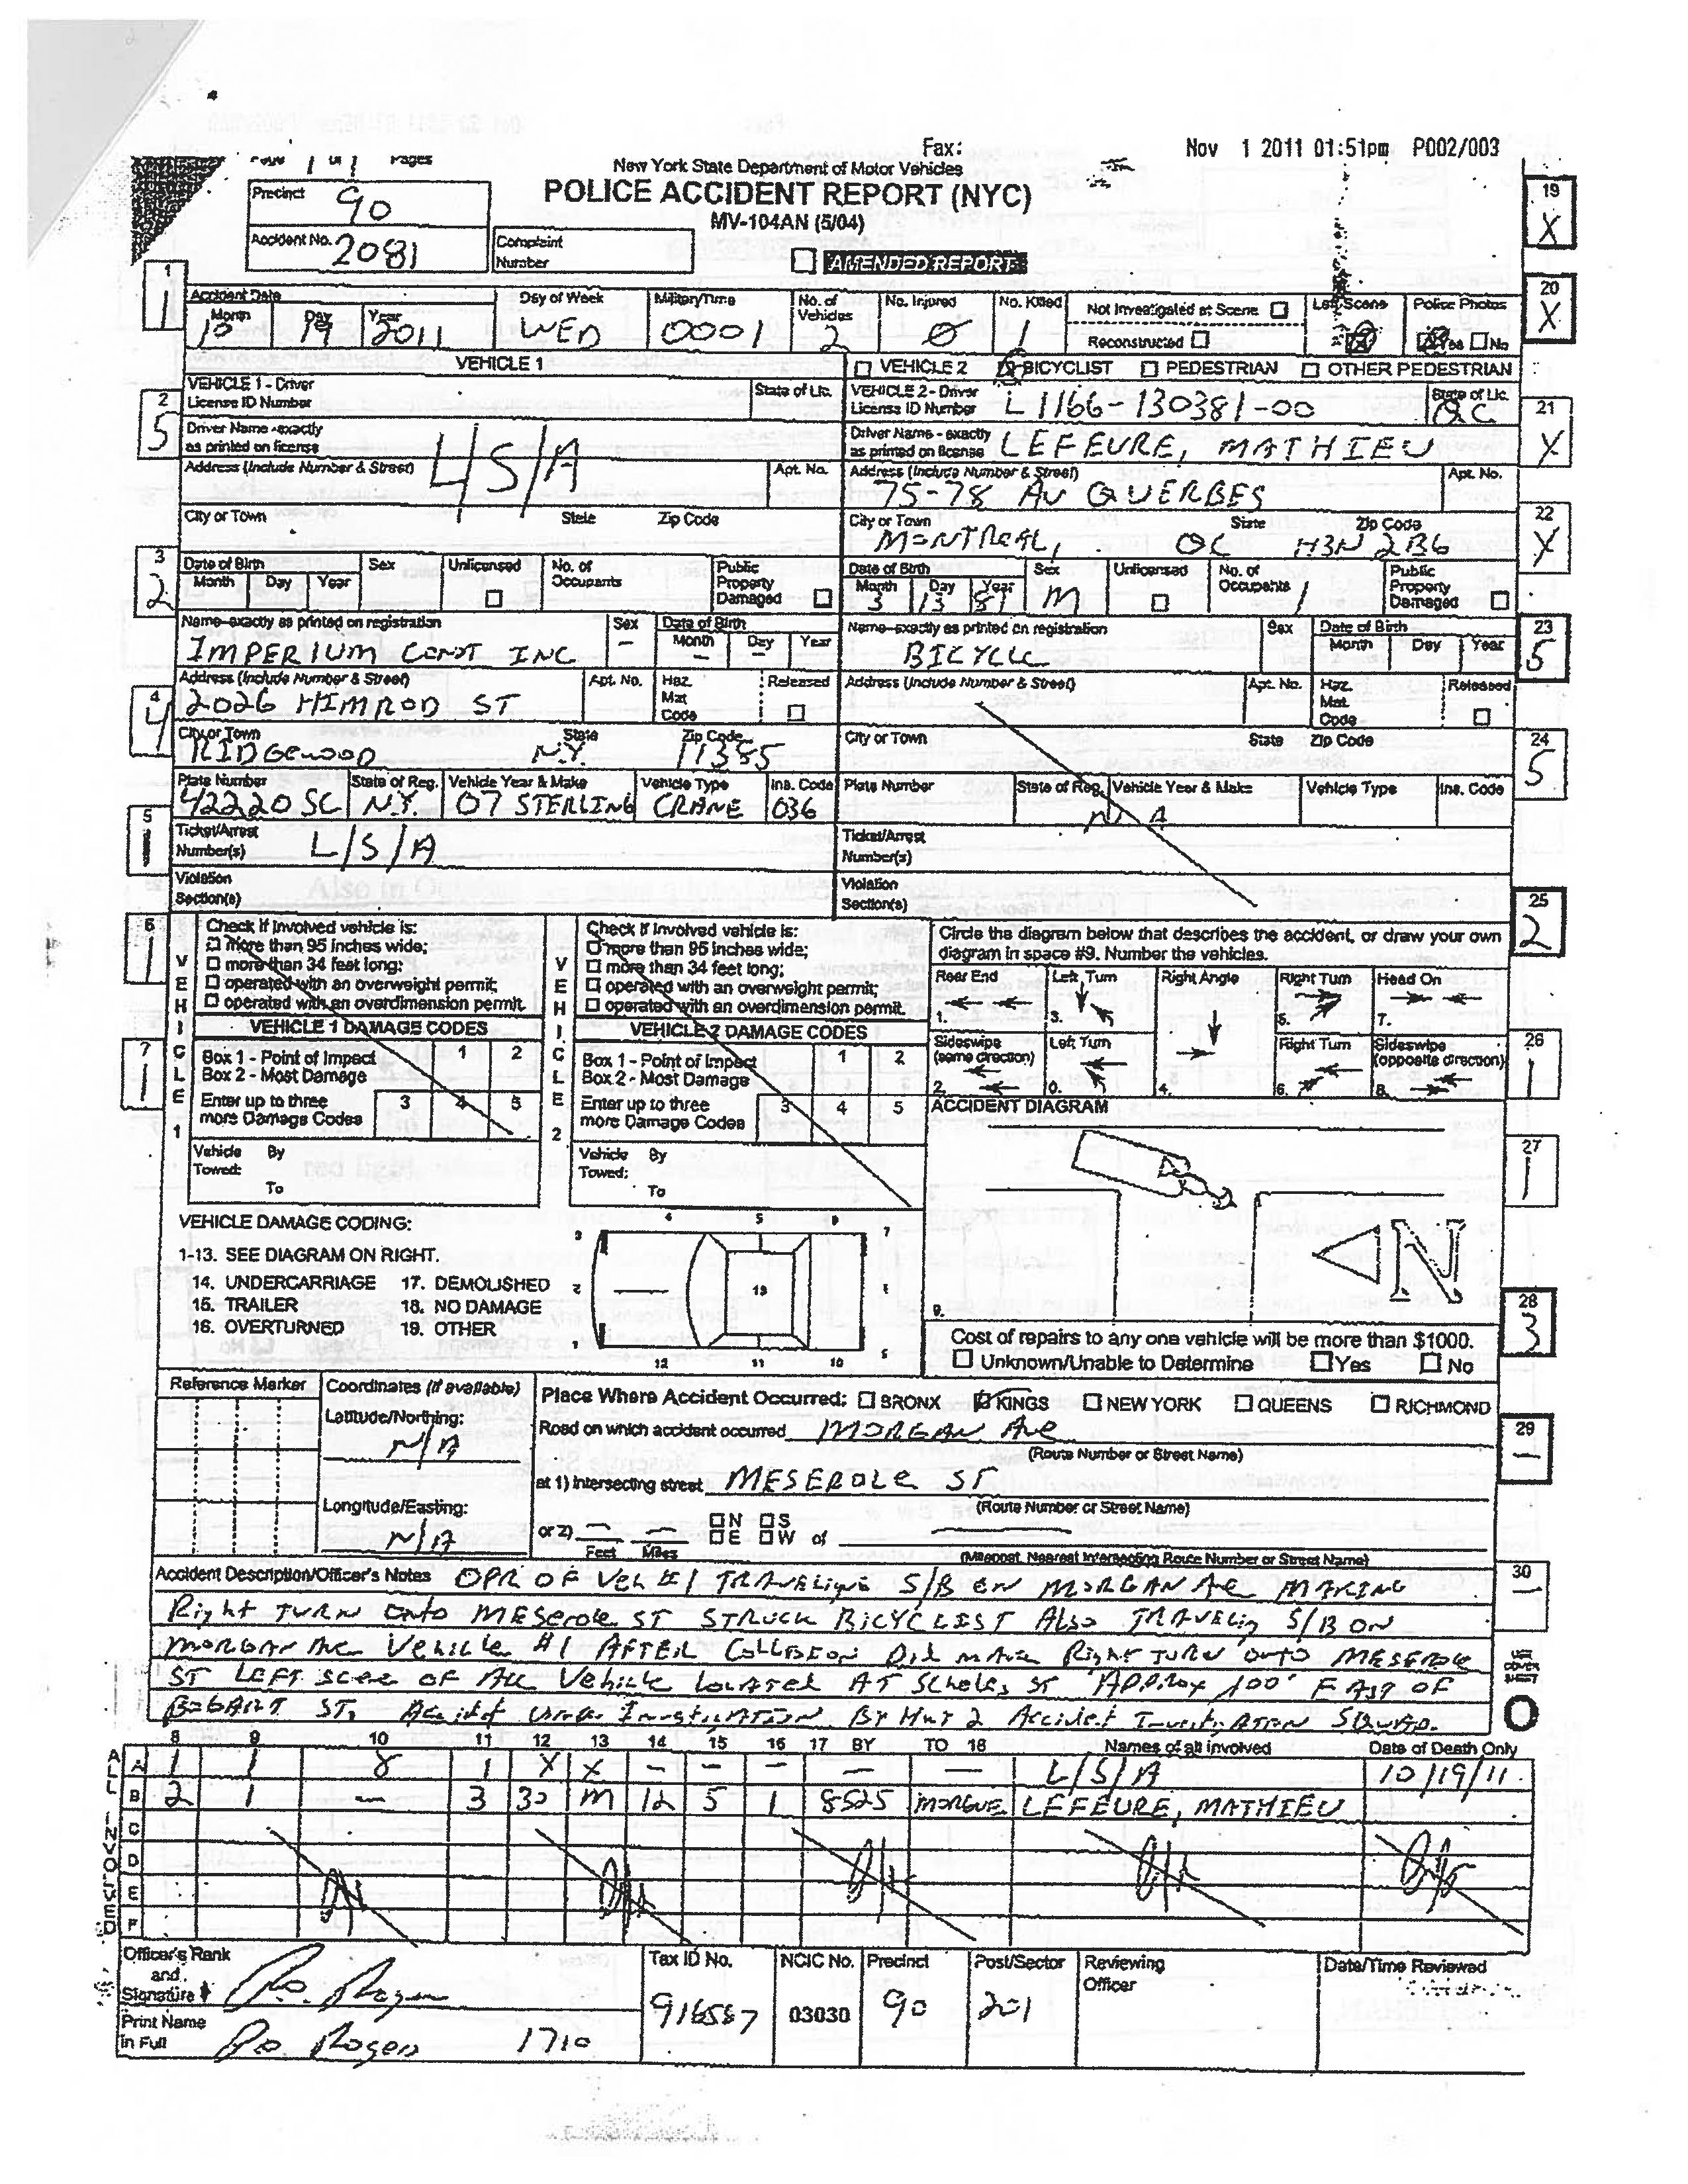 Fax: Nov 1 2011 01:51pm P002/003
Page 1 of 1 Pages
New York State Department of Motor Vehicles
POLICE ACCIDENT REPORT (NYC)
MV-104AN (5/04)
Precinct 90
Accident No. 2081
Complaint Number
AMENDED REPORT
19 X
1 1
Accident Date Month 10 Day 19 Year 2011
Day of Week WED
Military Time 0001
No. of Vehicles 2
No. Injured 0
No. Killed 1
Not Investigated at Scene
Reconstructed
Left Scene
Police Photos Yes No
20 X
VEHICLE 1
VEHICLE 2 BICYCLIST PEDESTRIAN OTHER PEDESTRIAN
2 5
VEHICLE 1 - Driver License ID Number State of Lic.
VEHICLE 2 - Driver License ID Number L1166-130381-00 State of Lic. QC
21 X
Driver Name -exactly as printed on license L/S/A
Driver Name - exactly as printed on license LEFEURE, MATHIEU
Address (Include Number & Street) Apt. No.
Address (Include Number & Street) 75-78 AV QUERBES Apt. No.
City or Town State Zip Code
City or Town MONTREAL, State QC Zip Code H3N 2B6
22 X
3 2
Date of Birth Month Day Year Sex Unlicensed No. of Occupants Public Property Damaged
Date of Birth Month 3 Day 13 Year 81 Sex M Unlicensed No. of Occupants 1 Public Property Damaged
Name-exactly as printed on registration IMPERIUM CONST INC Sex - Date of Birth Month - Day - Year
Name-exactly as printed on registration BICYCLE Sex Date of Birth Month Day Year
23 5
4 4
Address (Include Number & Street) 2026 HIMROD ST Apt. No. Haz. Mat. Code Released
Address (Include Number & Street) Apt. No. Haz. Mat. Code Released
City or Town RIDGEWOOD State N.Y. Zip Code 11385
City or Town State Zip Code
24 5
Plate Number 42220SC State of Reg. N.Y. Vehicle Year & Make 07 STERLING Vehicle Type CRANE Ins. Code 036
Plate Number State of Reg. Vehicle Year & Make Vehicle Type Ins. Code
N A
5 1
Ticket/Arrest Number(s) L/S/A
Ticket/Arrest Number(s)
Violation Section(s)
Violation Section(s)
25 2
6 1
VEHICLE 1
Check if involved vehicle is:
more than 95 inches wide;
more than 34 feet long;
operated with an overweight permit;
operated with an overdimension permit.
VEHICLE 1 DAMAGE CODES
Box 1 - Point of Impact 1 2
Box 2 - Most Damage
Enter up to three 3 4 5
more Damage Codes
Vehicle By
Towed:
To
7 1
VEHICLE 2
Check if involved vehicle is:
more than 95 inches wide;
more than 34 feet long;
operated with an overweight permit;
operated with an overdimension permit.
VEHICLE 2 DAMAGE CODES
Box 1 - Point of Impact 1 2
Box 2 - Most Damage
Enter up to three 3 4 5
more Damage Codes
Vehicle By
Towed:
To
Circle the diagram below that describes the accident, or draw your own
diagram in space #9. Number the vehicles.
Rear End 1. Left Turn 3. Right Angle Right Turn 5. Head On 7.
Sideswipe (same direction) 2. Left Turn 0. 4. Right Turn 6. Sideswipe (opposite direction) 8.
26 1
ACCIDENT DIAGRAM
N
9.
27 1
VEHICLE DAMAGE CODING:
1-13. SEE DIAGRAM ON RIGHT.
14. UNDERCARRIAGE 17. DEMOLISHED
15. TRAILER 18. NO DAMAGE
16. OVERTURNED 19. OTHER
28 3
Cost of repairs to any one vehicle will be more than $1000.
Unknown/Unable to Determine Yes No
Reference Marker
Coordinates (if available)
Latitude/Northing:
N/A
Longitude/Easting:
N/A
Place Where Accident Occurred: BRONX KINGS NEW YORK QUEENS RICHMOND
Road on which accident occurred MORGAN Ave
(Route Number or Street Name)
29 -
at 1) intersecting street MESEROLE ST
(Route Number or Street Name)
or 2) Feet Miles N S E W of
(Milepost, Nearest Intersecting Route Number or Street Name)
30 -
Accident Description/Officer's Notes OPR OF Veh #1 TRAVELING S/B ON MORGAN Ave MAKING
Right TURN onto MESerole ST STRUCK BICYCLIST Also TRAVELing S/B ON
MORGAN Ave Vehicle #1 AFTER COLLISION Did make Right TURN onto MESEROLE
ST LEFT scene OF Acc Vehicle Located AT Scholes ST Approx 100' EAST OF
BOGART ST. Accident Under Investigation By Hwy 2 Accident Investigation SQUAD.
USE COVER SHEET
8 9 10 11 12 13 14 15 16 17 BY TO 18 Names of all involved Date of Death Only
ALL INVOLVED
A 1 1 8 1 X X - - - - - L/S/A 10/19/11
B 2 1 - 3 30 M 12 5 1 8525 MORGUE LEFEURE, MATHIEU
C
D
E
F
Officer's Rank and Signature P.O. Rogers
Print Name in Full Po Rogers 1710
Tax ID No. 916587
NCIC No. 03030
Precinct 90
Post/Sector 201
Reviewing Officer
Date/Time Reviewed